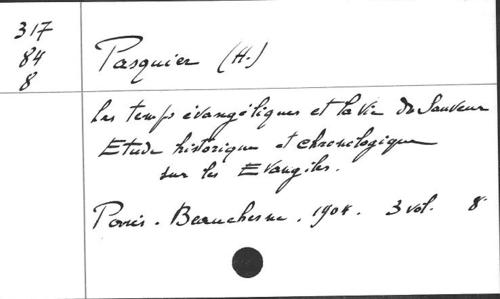 317
84
8
Pasquier (H.)
Les temps évangéliques et la vie du Sauveur
Etude historique et chronologique
sur les Evangiles.
Paris. Beauchesne. 1904. 3 vol. 8°